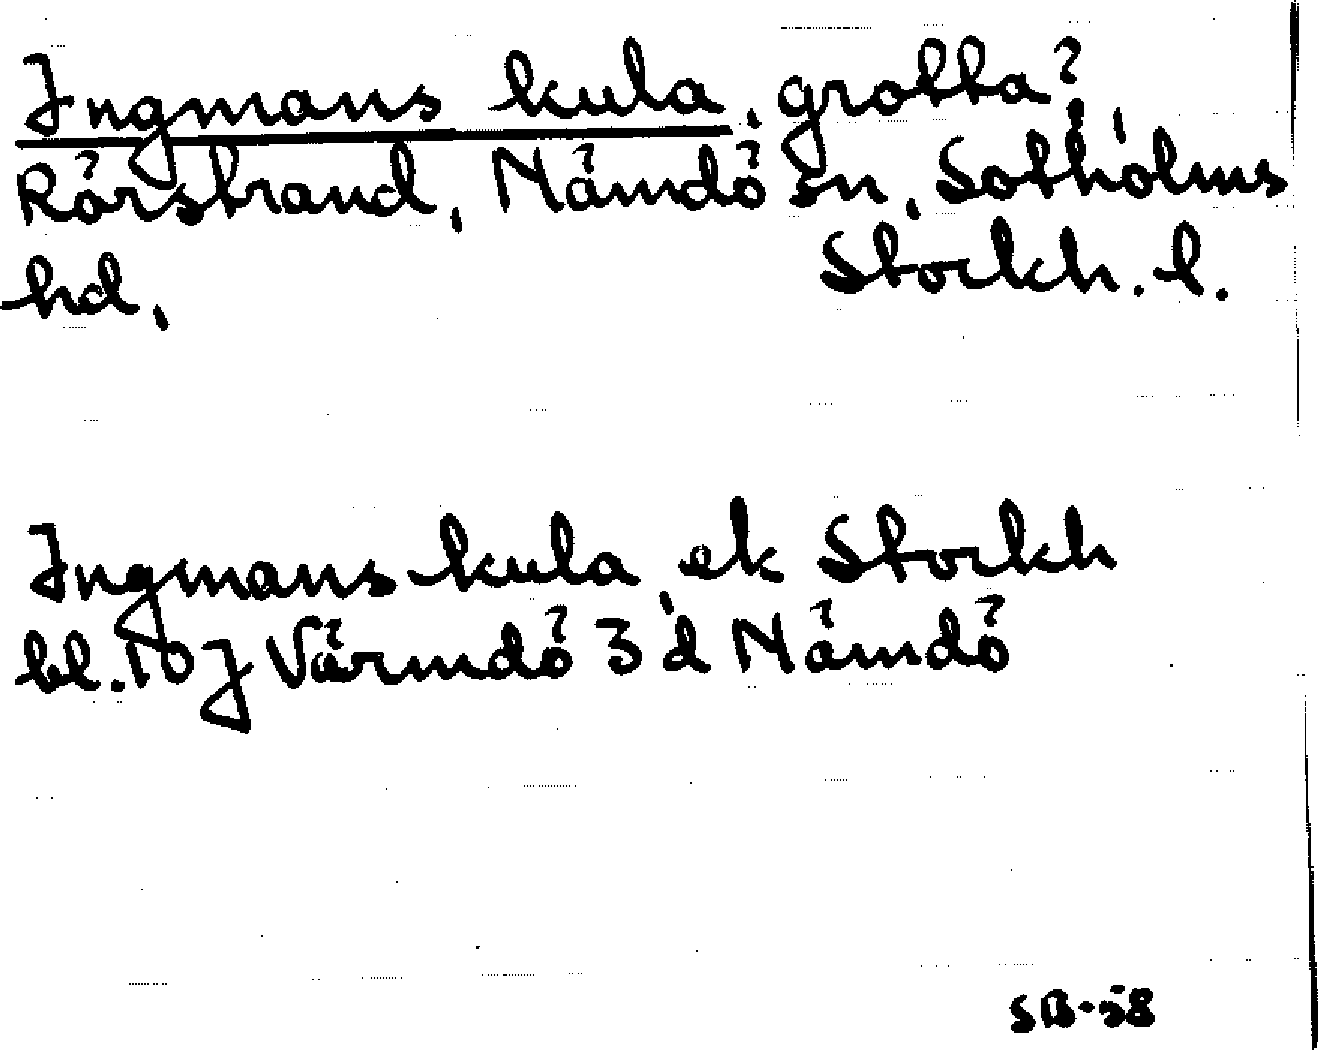 Ingmans kula, grotta?,
Rörstrand, Nämdö sn, Sotholms
hd, Stockh. l.
Ingmans kula, ek Stockh
bl. 10 J Värmdö 3 d Nämdö
SB-58